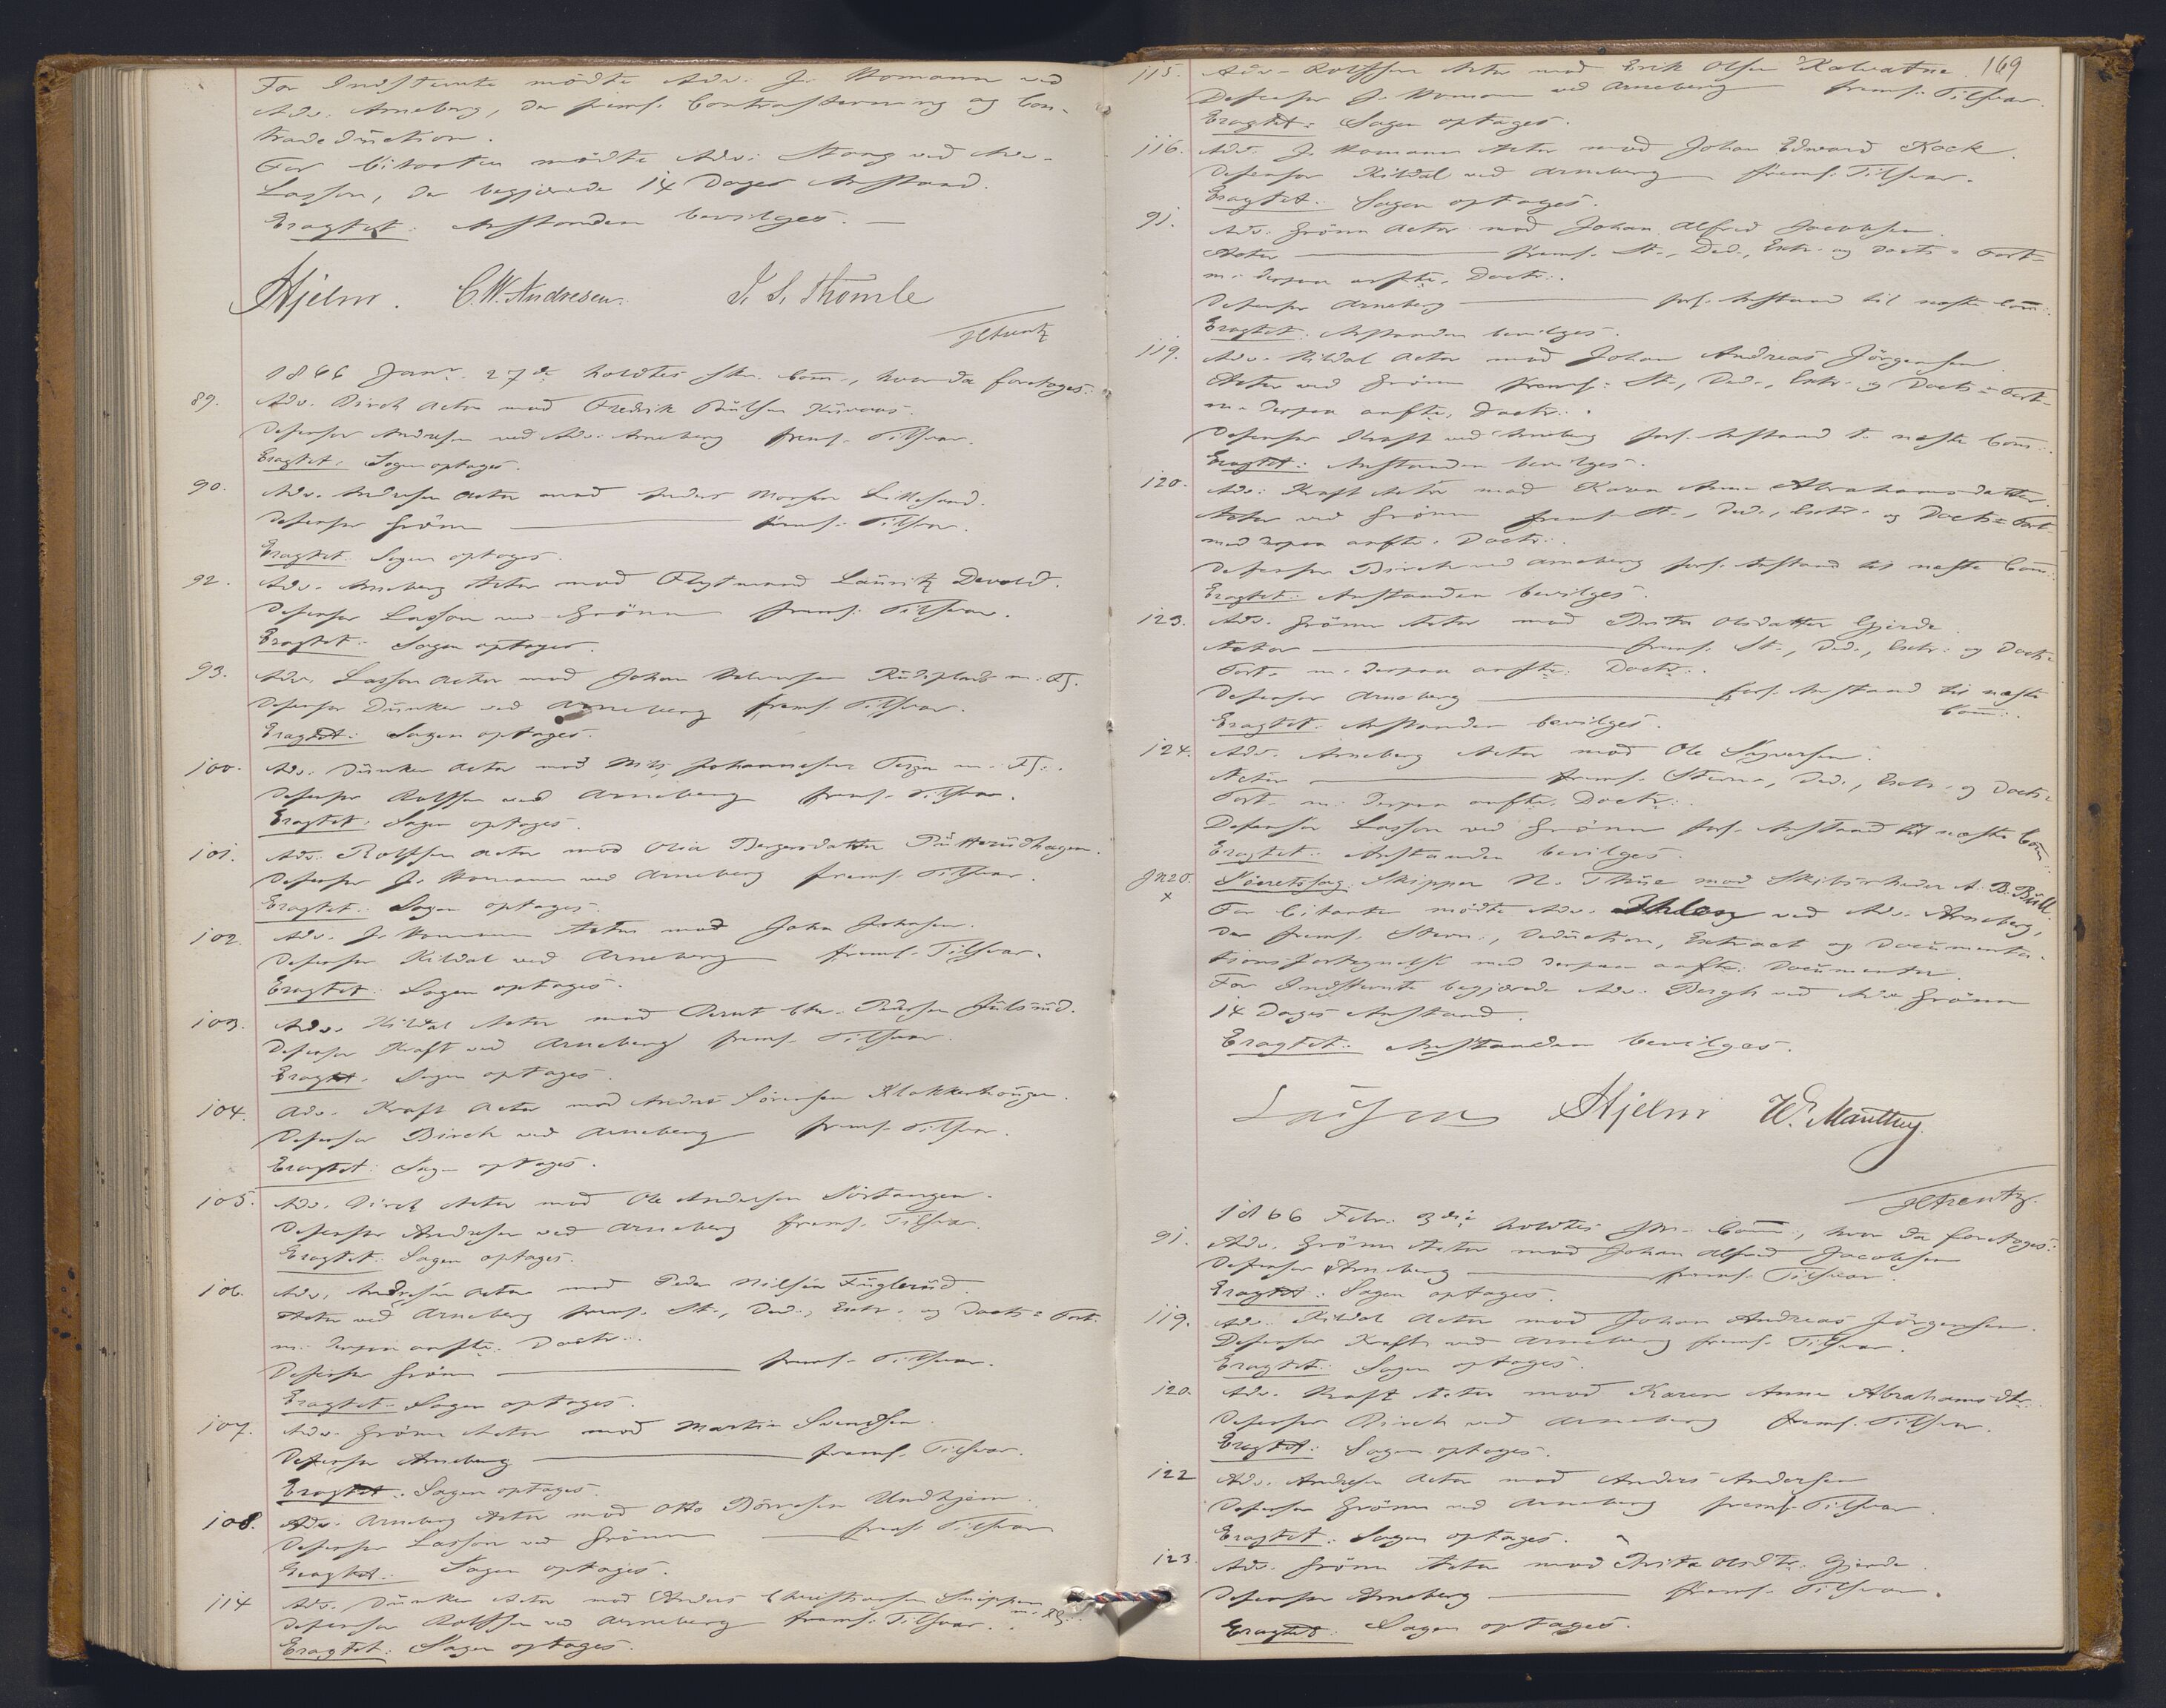 For Indstevnte mödte Adv. J. Homann ved
Adv. Arneberg, der fremf. Contrastevning og Con-
tradeduction.
For Citanten mödte Adv. Stang ved Adv.
Lasson, der begjærede 14 Dages Anstand.
Eragtet: Anstanden bevilges.
Hjelm. C.W. Andresen. J. S. Thomle
1866 Janr. 27de holdtes Skr. Com:, hvor da foretages:
89. Adv. Birch Actor mod Fredrik
Defensor Andresen ved Adv. Arneberg fremf. Tilsvar.
Eragtet: Sagen optages.
90. Adv. Andresen Actor mod Anders Monsen
Defensor Grönn fremf. Tilsvar.
Eragtet: Sagen optages.
92. Adv. Arneberg Actor mod Flygtmand Lauritz Devold.
Defensor Lasson ved Grönn fremf. Tilsvar.
Eragtet: Sagen optages.
93. Adv. Lasson Actor mod Johan Halvorsen m. Fl.
Defensor Dunker ved Arneberg fremf. Tilsvar.
Eragtet: Sagen optages.
100. Adv. Dunker Actor mod Nils Johannesen m. Fl.
Defensor Rolfsen ved Arneberg fremf. Tilsvar.
Eragtet: Sagen optages.
101. Adv. Rolfsen Actor mod Olia Bergersdatter Putterudhagen.
Defensor J. Homann ved Arneberg fremf. Tilsvar.
Eragtet: Sagen optages.
102. Adv. J. Homann Actor mod John Johnsen.
Defensor Kildal ved Arneberg fremf. Tilsvar.
Eragtet: Sagen optages.
103. Adv. Kildal Actor mod Bernt Chr. Pedersen Julsrud.
Defensor Kraft ved Arneberg fremf. Tilsvar.
Eragtet: Sagen optages.
104. Adv. Kraft Actor mod Anders Sörensen Klokkerhougen.
Defensor Birch ved Arneberg fremf. Tilsvar.
Eragtet: Sagen optages.
105. Adv. Birch Actor mod Ole Andersen Sörtangen.
Defensor Andresen ved Arneberg fremf. Tilsvar.
Eragtet: Sagen optages.
106. Adv. Andresen Actor mod Peder Nilsen Fuglerud.
Actor ved Arneberg fremf. St., Ded., Extr. og Docts= Fort.
m. derpaa anfte. Doctr.
Defensor Grönn fremf. Tilsvar.
Eragtet: Sagen optages.
107. Adv. Grönn Actor mod Martin Svendsen.
Defensor Arneberg fremf. Tilsvar.
Eragtet: Sagen optages.
108. Adv. Arneberg Actor mod Otto Börresen Undhjem.
Defensor Lasson ved Grönn fremf. Tilsvar
Eragtet: Sagen optages.
114 Adv. Dunker Actor mod Anders Christiansen m. Fl.
Defensor Rolfsen ved Arneberg fremf. Tilsvar.
Eragtet: Sagen optages.
169
115. Adv. Rolfsen Actor mod Erik Olsen Kalvatne.
Defensor J. Homann ved Arneberg fremf. Tilsvar.
Eragtet: Sagen optages.
116. Adv. J. Homann Actor mod Johan Edward Kock.
Defensor Kildal ved Arneberg fremf. Tilsvar.
Eragtet: Sagen optages.
91. Adv. Grönn Actor mod Johan Alfred Jacobsen.
Actor fremf. St., Ded., Extr. og Docts= Fort=
m. derpaa anfte. Doctr.
Defensor Arneberg forl. Anstand til næste Com:
Eragtet: Anstanden bevilges.
119. Adv. Kildal Actor mod Johan Andreas Jörgensen.
Actor ved Grönn fremf. St., Ded., Extr. og Docts= Fort=
m. derpaa anfte. Doctr.
Defensor Kraft ved Arneberg forl. Anstand t. næste Com:
Eragtet: Anstanden bevilges.
120. Adv. Kraft Actor mod Karen Anne Abrahamsdatter.
Actor ved Grönn fremf. St., Ded., Extr. og Docts= Fort
med derpaa anfte. Doctr.
Defensor Birch ved Arneberg forl. Anstand til næste Com:
Eragtet: Anstanden bevilges.
123. Adv. Grönn Actor mod Brita Olsdatter Gjerde.
Actor fremf. St., Ded., Extr. og Docts=
Fort. m. derpaa anfte. Doctr.
Defensor Arneberg forl. Anstand til næste
Com:
Eragtet: Anstanden bevilges.
124. Adv. Arneberg Actor mod Ole Syversen.
Actor fremf. Stevn., Ded., Extr. og Docts=
Fort. m. derpaa anfte. Doctr.
Defensor Lasson ved Grönn forl. Anstand til næste Com:
Eragtet: Anstanden bevilges.
Söeretssag: Skipper N. Thue mod Skibsrheder A. B. Bull.
For Citanten mödte Adv. Ihlen ved Adv. Arneberg,
der fremf. Stevn., Deduction, Extract og Documenta-
tionsfortegnelse med derpaa anfte. Documenter.
For Indstevnte begjærede Adv. Bergh ved Adv. Grönn
14 Dages Anstand.
Eragtet: Anstanden bevilges.
Lasson Hjelm W. Manthey.
1866 Febr. 3die holdtes Skr. Com:, hvor da foretages:
91. Adv. Grönn Actor mod Johan Alfred Jacobsen
Defensor Arneberg fremf. Tilsvar.
Eragtet: Sagen optages.
119. Adv. Kildal Actor mod Johan Andreas Jörgensen.
Defensor Kraft ved Arneberg fremf. Tilsvar.
Eragtet: Sagen optages.
120. Adv. Kraft Actor mod Karen Anne Abrahamsdtr.
Defensor Birch ved Arneberg fremf. Tilsvar.
Eragtet: Sagen optages.
122 Adv. Andresen Actor mod Anders Andersen
Defensor Grönn ved Arneberg fremf. Tilsvar.
Eragtet: Sagen optages.
123. Adv. Grönn Actor mod Brita Olsdtr. Gjerde.
Defensor Arneberg fremf. Tilsvar.
Eragtet: Sagen optages.